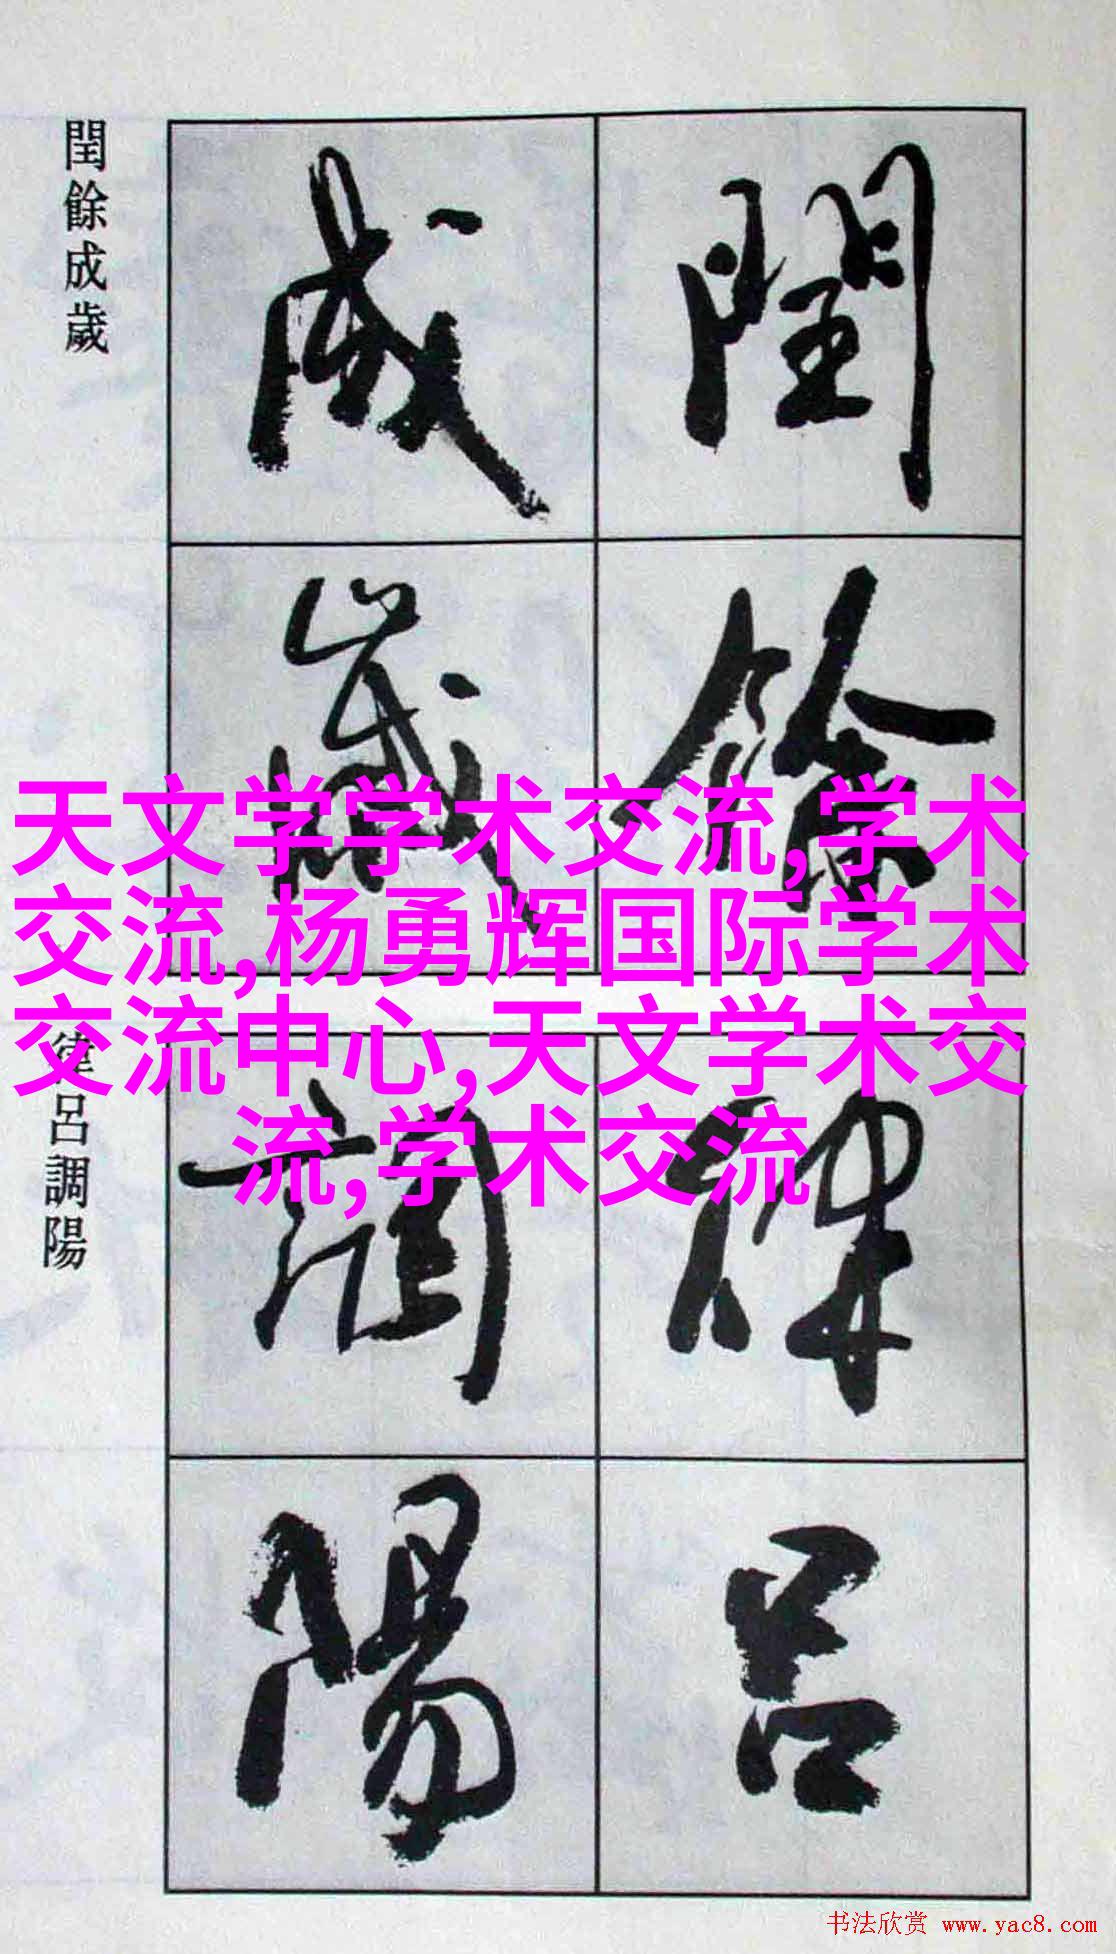 閏餘成歲
閏餘
成歲
天文学学术交流,学术
交流,杨勇辉国际学术
交流中心,天文学术交
流,学术交流
律呂調陽
律呂
調陽
书法欣赏 www.yac8.com